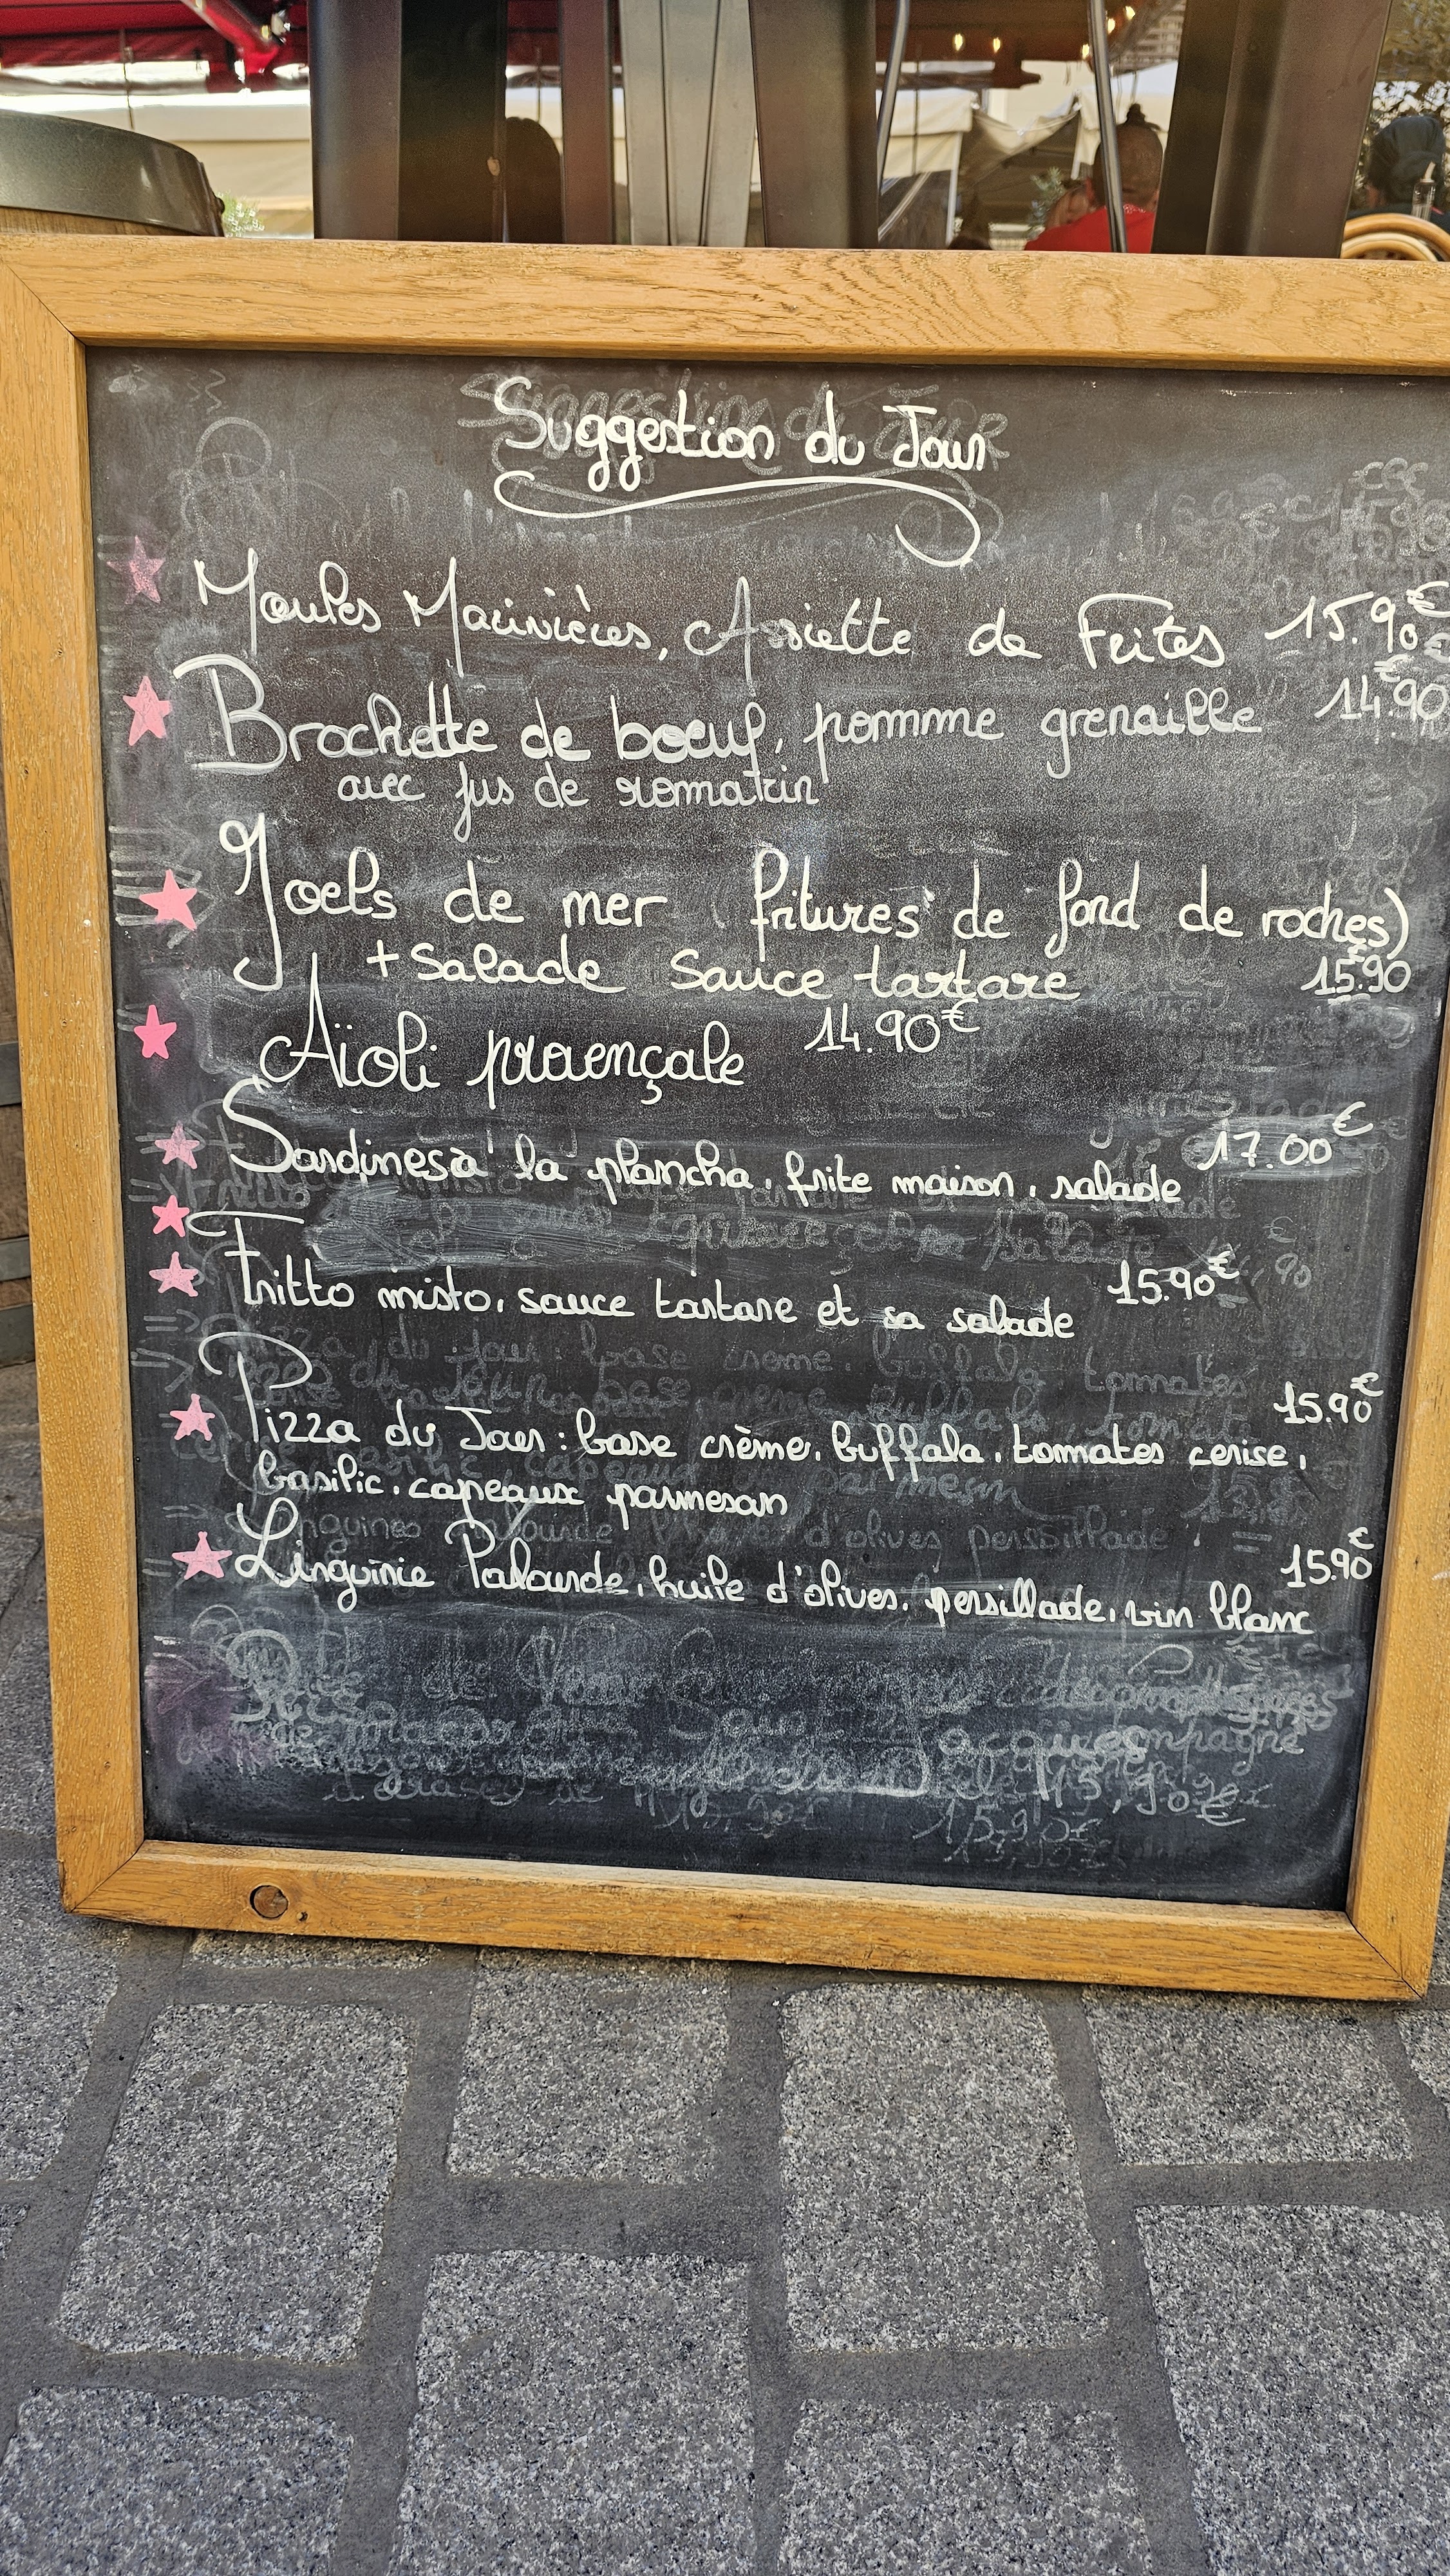 Suggestion du Jour
Moules Marinières, Assiette de Frites 15.90€
Brochette de boeuf, pomme grenaille 14.90€
avec jus de romarin
Joels de mer (fritures de fond de roches)
+ Salade Sauce tartare 15.90
Aïoli provençale 14.90€
Sardines à la plancha, frite maison, salade 17.00€
Fritto misto, sauce tartare et sa salade 15.90€
Pizza du Jour : base crème, buffala, tommates cerise, 15.90€
basilic, capeaux parmesan
Linguinie Palourde, huile d'olives, persillade, vin blanc 15.90€